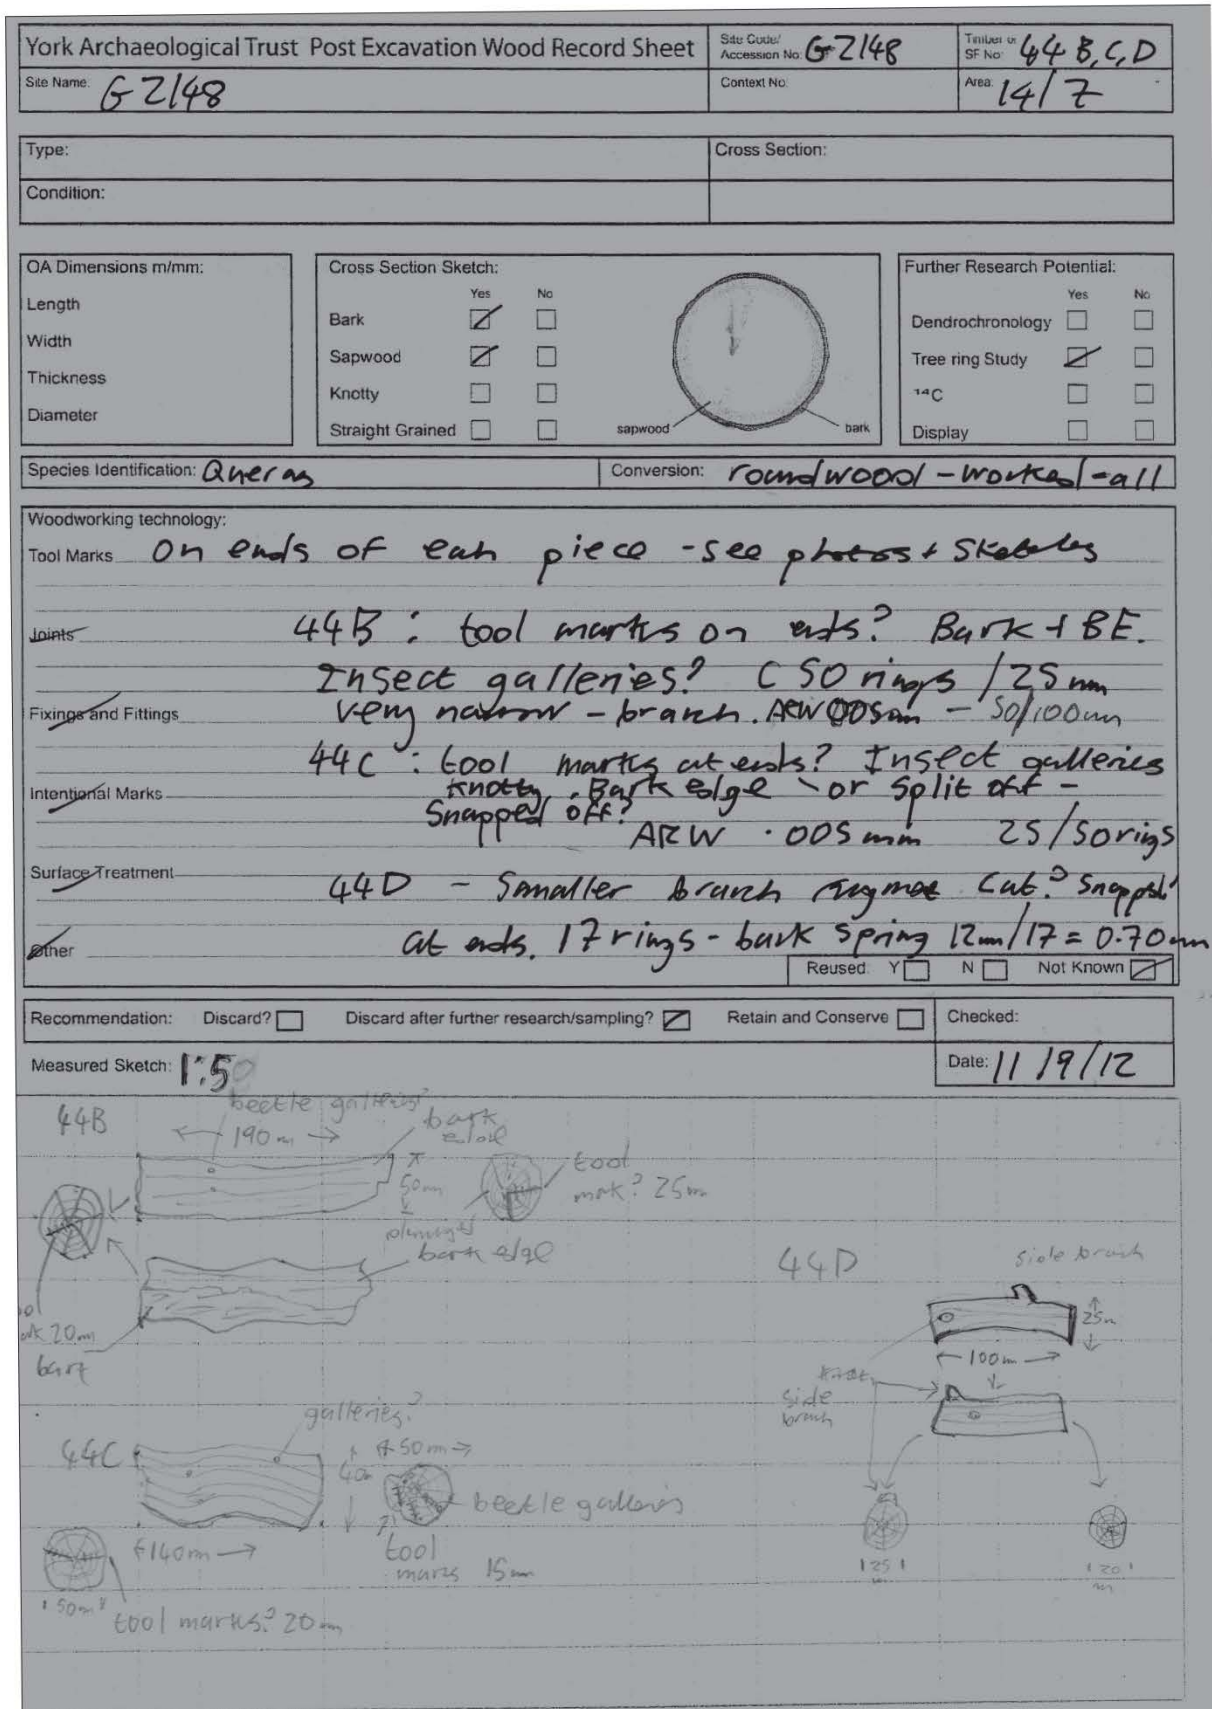 York Archaeological Trust Post Excavation Wood Record Sheet
Site Code/ Accession No: GZ148
Timber or SF No: 44 B, C, D
Site Name: GZ148
Context No:
Area: 14/7
Type:
Cross Section:
Condition:
OA Dimensions m/mm:
Length
Width
Thickness
Diameter
Cross Section Sketch:
Yes No
Bark
Sapwood
Knotty
Straight Grained
sapwood
bark
Further Research Potential:
Yes No
Dendrochronology
Tree ring Study
14C
Display
Species Identification: Quercus
Conversion: roundwood - worked - all
Woodworking technology:
Tool Marks On ends of each piece - see photos + sketches
Joints 44B : tool marks on ends? Bark + BE.
Insect galleries? C 50 rings / 25mm
Fixings and Fittings very narrow - branch. ARW 005mm - 50/100mm
44C : tool marks at ends? Insect galleries
Intentional Marks Knotty. Bark edge or split off -
Snapped off?
ARW .005mm 25/50rings
Surface Treatment 44D - Smaller branch Cut? Snapped?
Other at ends. 17 rings - bark spring 12mm/17 = 0.70mm
Reused: Y N Not Known
Recommendation: Discard? Discard after further research/sampling? Retain and Conserve
Checked:
Measured Sketch: 1:5
Date: 11/9/12
44B
beetle galleries?
190m
bark edge
50m
tool mark? 25m
bark edge
20m
bark
44D
side branch
25m
100m
side branch
25 m
20 m
galleries?
44C
50m
40m
beetle galleries
140m
tool marks 15m
50m
tool marks? 20m